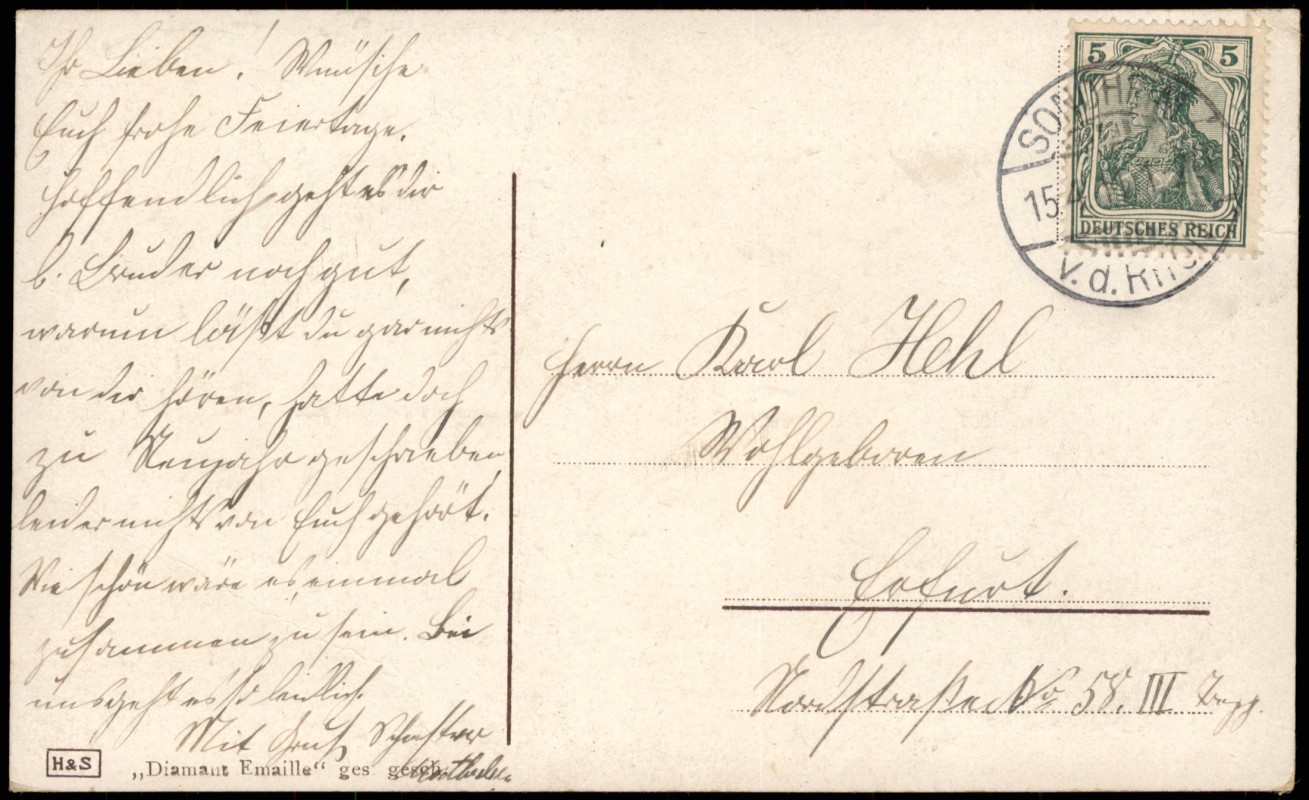 Ihr Lieben! Wünsche
Euch frohe Feiertage.
Hoffendlich geht es dir
l. Bruder noch gut,
warum läßt du gar nichts
von dir hören, hatte doch
zu Neujahr geschrieben
leider nichts von Euch gehört.
Wie schön wäre es, einmal
zusammen zu sein. Bei
uns geht es so leidlich.
Mit Gruß Schwester
H&S
„Diamant Emaille“ ges gesch.
5 5
DEUTSCHES REICH
15.4
v. d. Rhön
Herrn Karl Hehl
Wohlgeboren
Erfurt.
Nordstraße No 58. III Trpp.